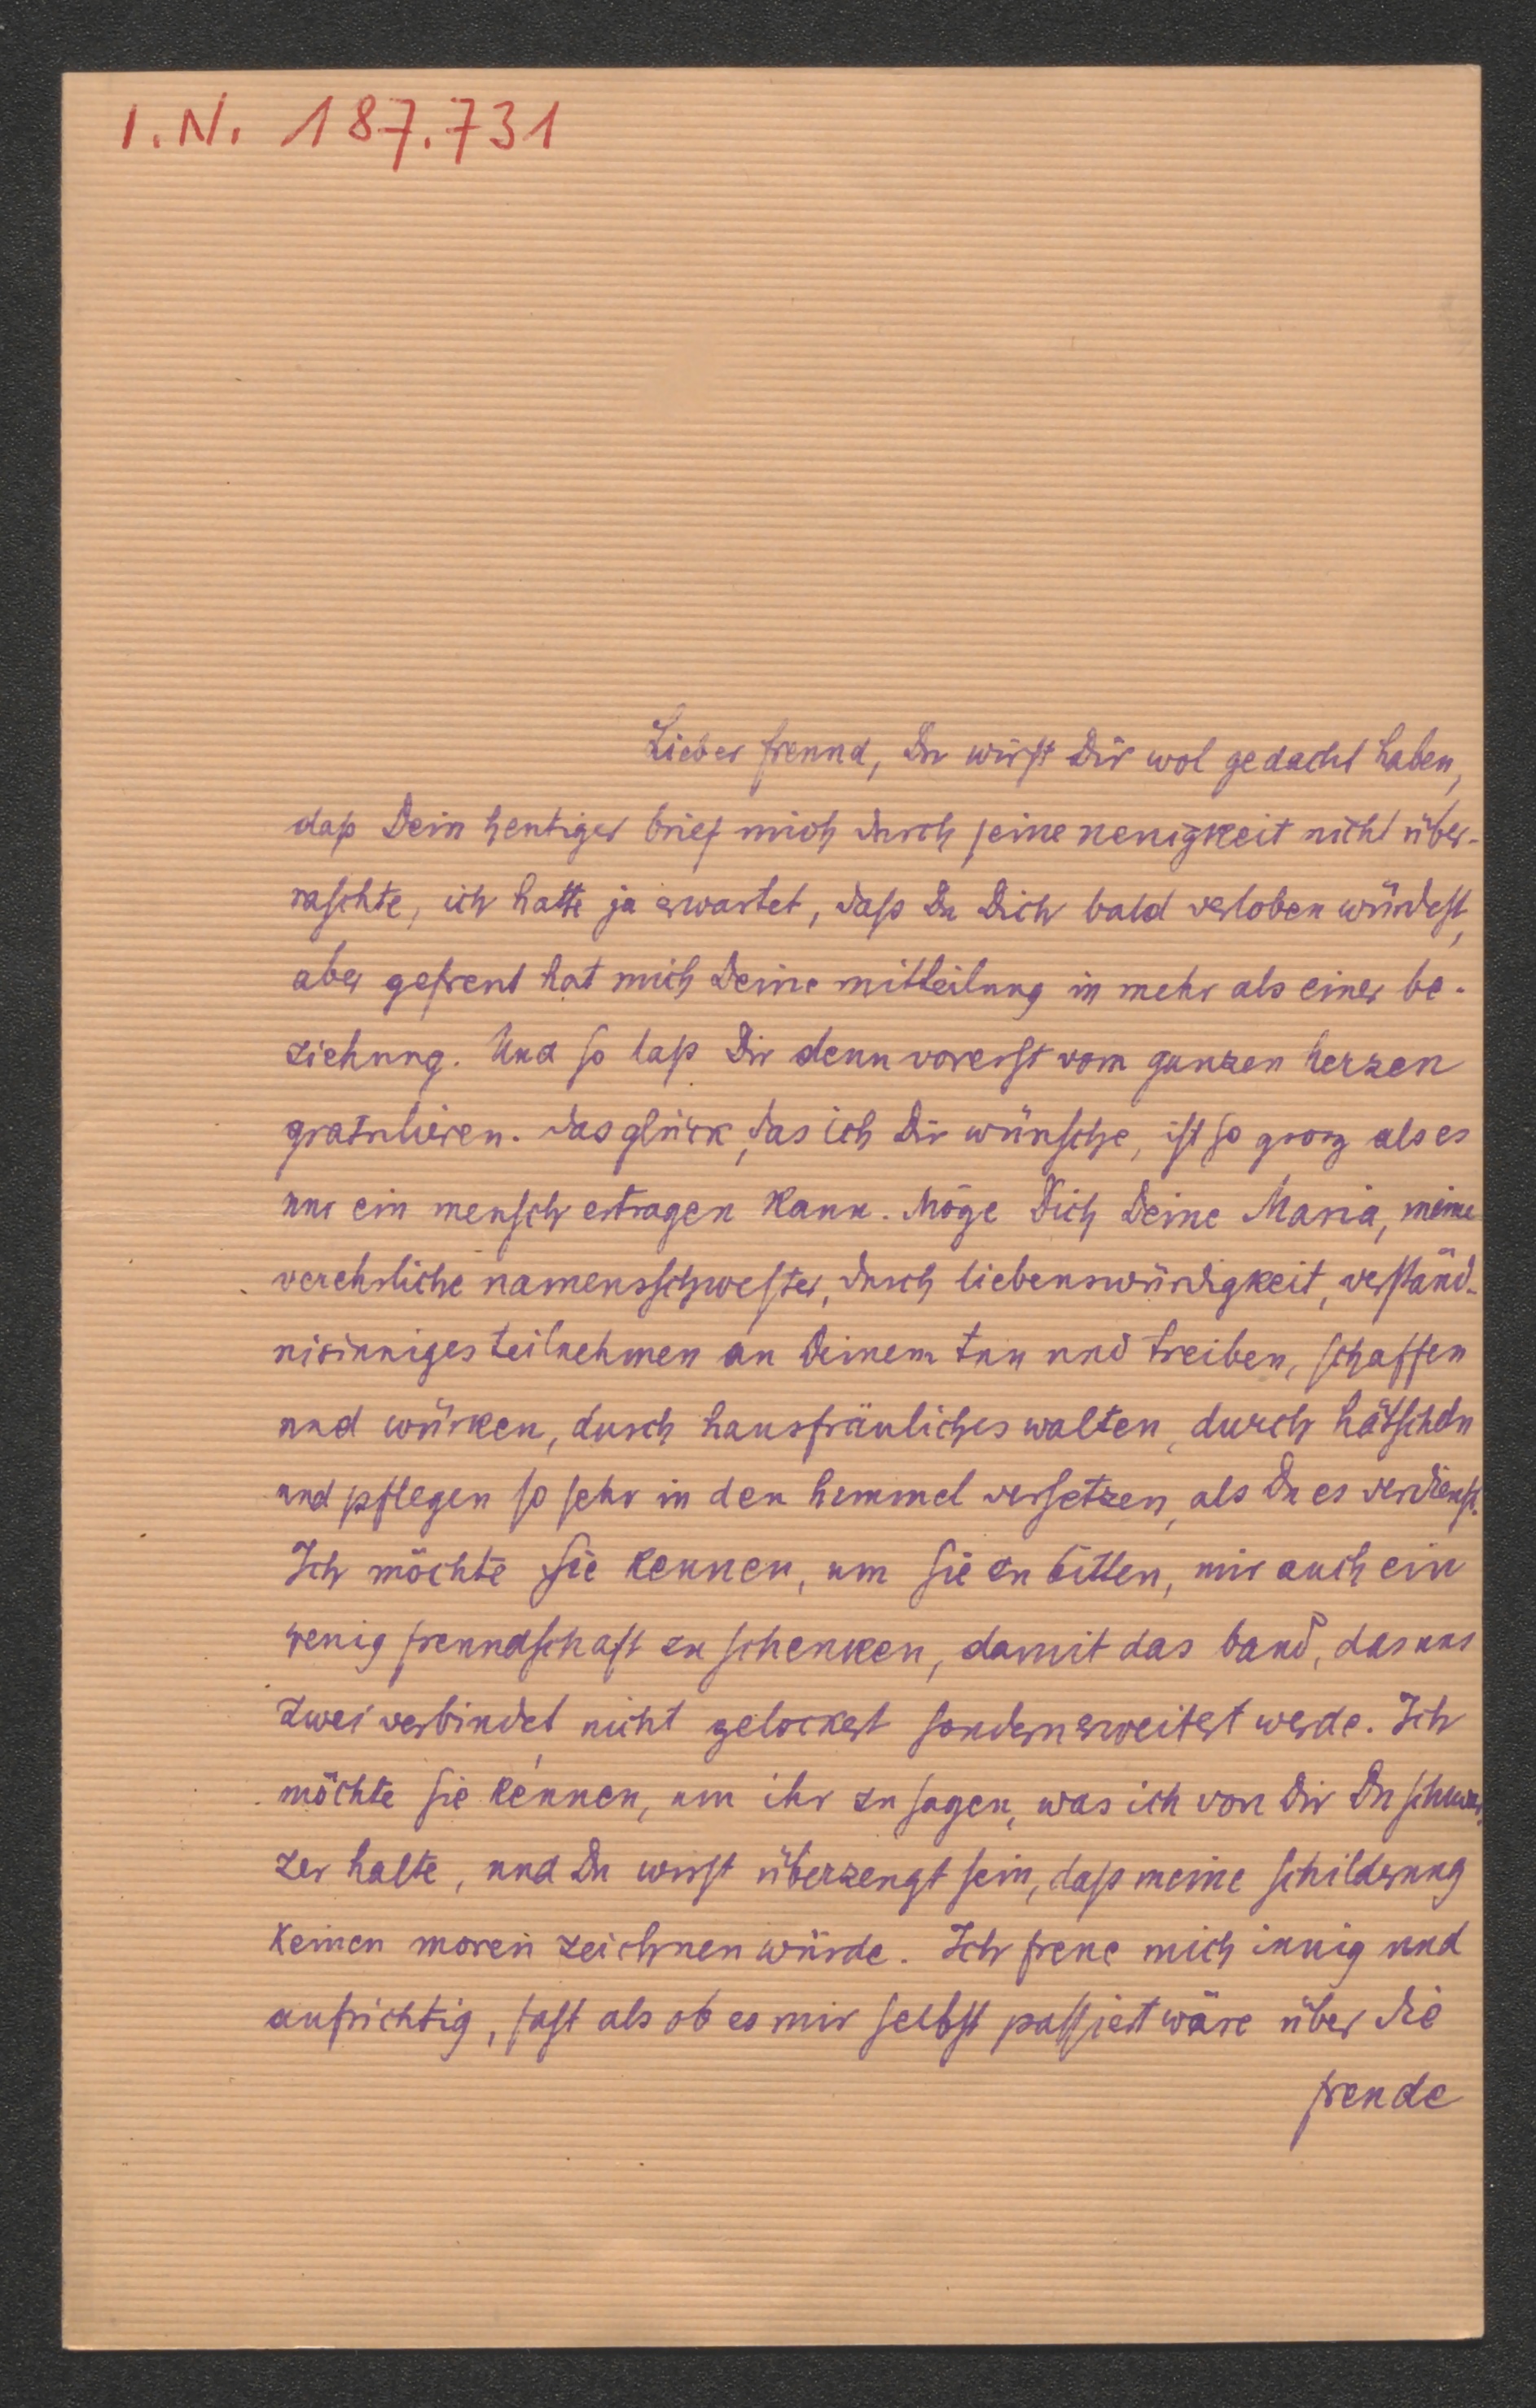 I.N. 187.731
Lieber freund, Du wirst Dir wol gedacht haben,
daß Dein heutiger brief mich durch seine neuigkeit nicht über-
raschte, ich hatte ja erwartet, daß Du Dich bald verloben würdest,
aber gefreut hat mich Deine mitteilung in mehr als einer be-
ziehung. Und so laß Dir denn vorerst vom ganzen herzen
gratulieren. das glück, das ich Dir wünsche, ist so grosz als es
nur ein mensch ertragen kann. Möge Dich Deine Maria, meine
verehrliche namensschwester, durch liebenswürdigkeit, verständ-
nisinniges teilnehmen an Deinem tun und treiben, schaffen
und würken, durch hausfräuliches walten, durch hätscheln
und pflegen so sehr in den himmel versetzen, als Du es verdienst.
Ich möchte sie kennen, um sie zu bitten, mir auch ein
wenig freundschaft zu schenken, damit das band, das uns
zwei verbindet, nicht gelockert sondern erweitert werde. Ich
möchte sie kennen, um ihr zu sagen, was ich von Dir Du schwar-
zer halte, und Du wirst überzeugt sein, daß meine schilderung
keinen moren zeichnen würde. Ich freue mich innig und
aufrichtig, fast als ob es mir selbst passiert wäre über die
freude